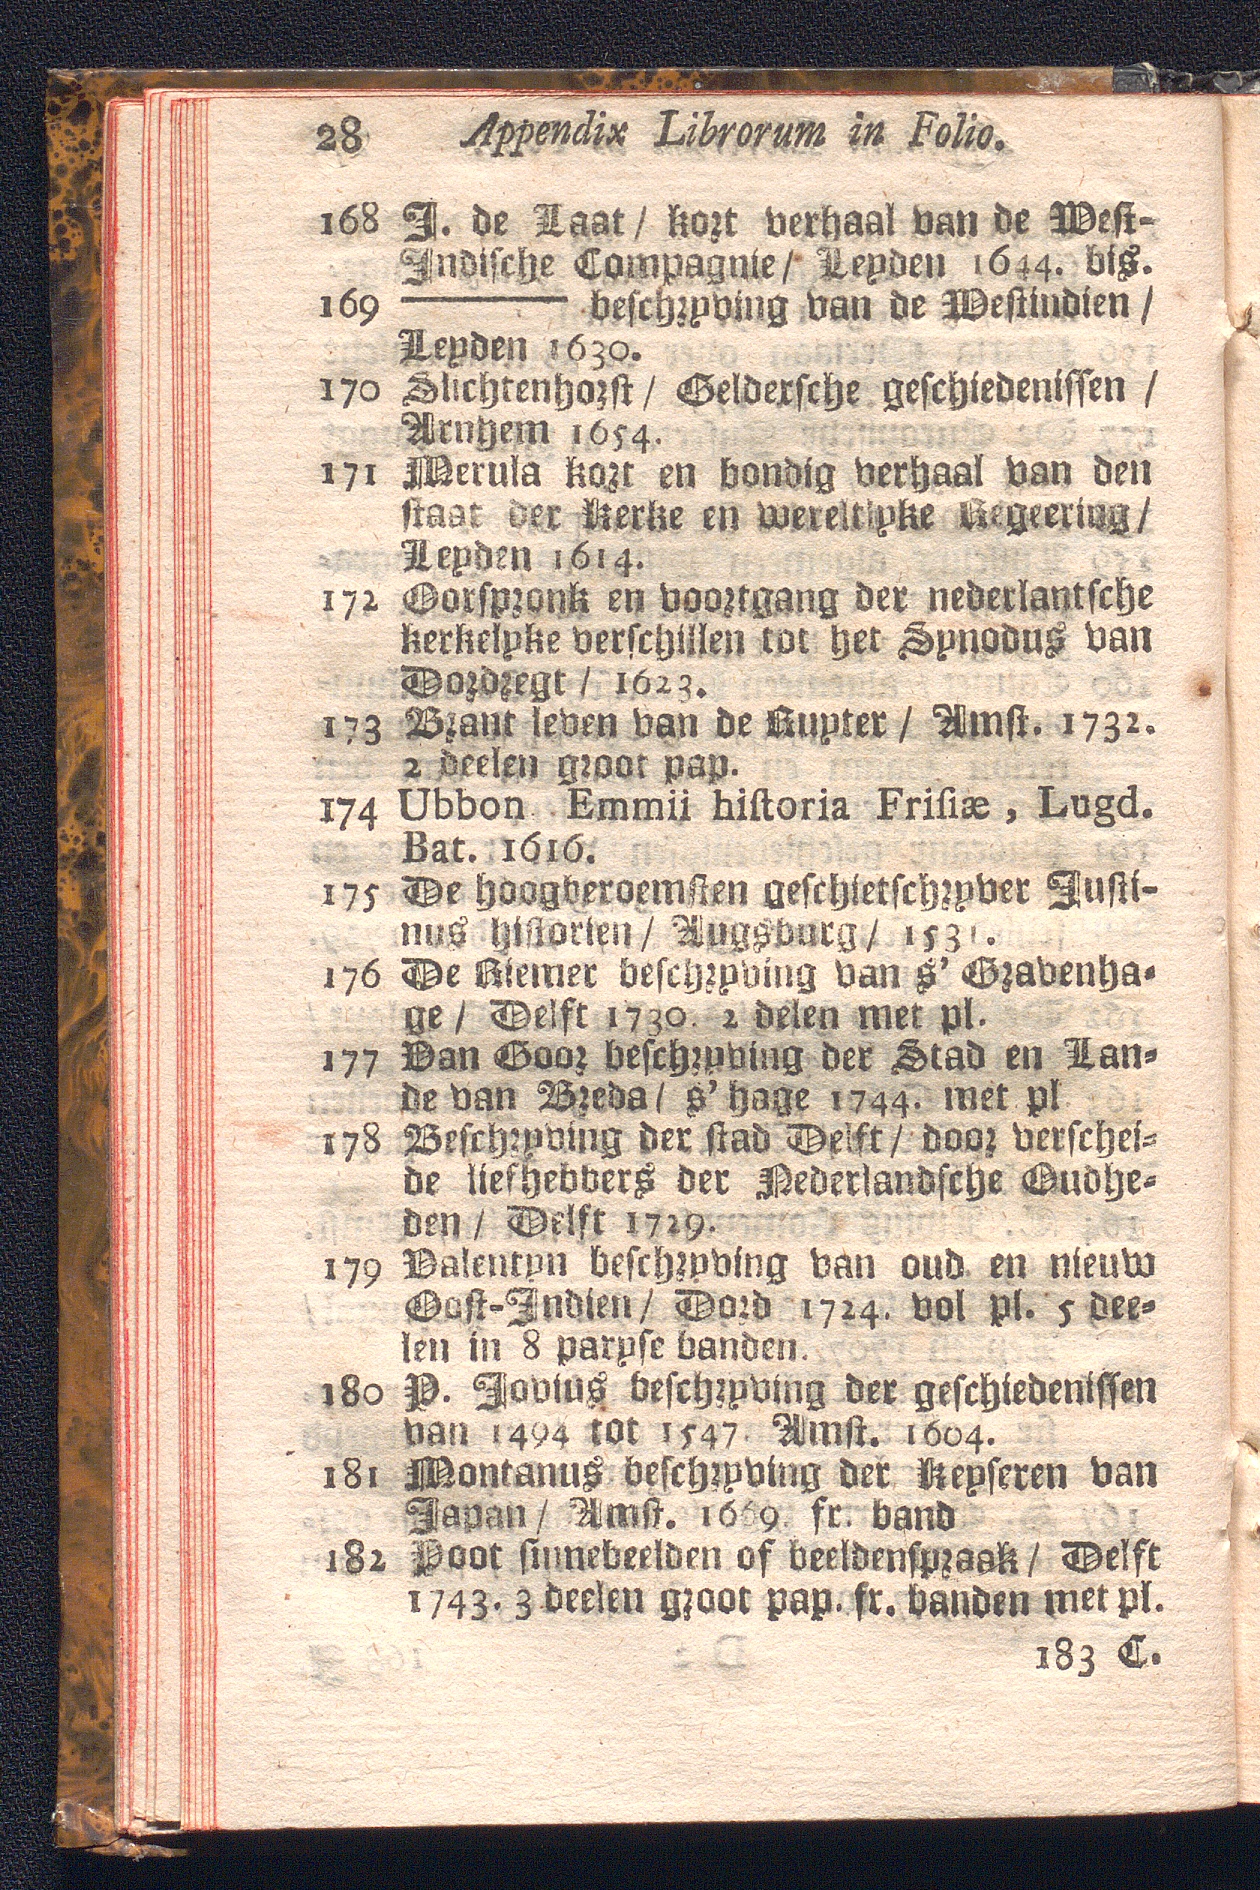 28 Appendix Librorum in Folio.
168 J. de Laat / kort verhaal van de West-
Indische Compagnie / Leyden 1644. bis.
169 ——— beschryving van de Westindien /
Leyden 1630.
170 Slichtenhorst / Geldersche geschiedenissen /
Arnhem 1654.
171 Merula kort en bondig verhaal van den
staat der Kerke en wereltlyke Regeering /
Leyden 1614.
172 Oorspronk en voortgang der nederlantsche
kerkelyke verschillen tot het Synodus van
Dordregt / 1623.
173 Brant leven van de Ruyter / Amst. 1732.
2 deelen groot pap.
174 Ubbon Emmii historia Frisiæ, Lugd.
Bat. 1616.
175 De hoogberoemsten geschietschryver Justi-
nus historien / Augsburg / 1531.
176 De Riemer beschryving van s' Gravenha-
ge / Delft 1730. 2 delen met pl.
177 Van Goor beschryving der Stad en Lan-
de van Breda / s' hage 1744. met pl
178 Beschryving der stad Delft / door verschei-
de liefhebbers der Nederlandsche Oudhe-
den / Delft 1729.
179 Valentyn beschryving van oud en nieuw
Oost-Indien / Dord 1724. vol pl. 5 dee-
len in 8 paryse banden.
180 P. Jovius beschryving der geschiedenissen
van 1494 tot 1547. Amst. 1604.
181 Montanus beschryving der Keyseren van
Japan / Amst. 1669. fr. band
182 Poot sinnebeelden of beeldenspraak / Delft
1743. 3 deelen groot pap. fr. banden met pl.
183 C.